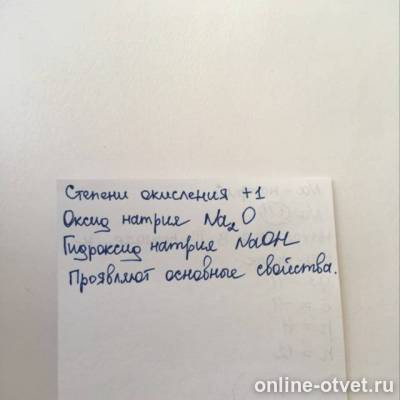 Степени окисления +1
Оксид натрия Na₂O
Гидроксид натрия NaOH
Проявляют основные свойства.
online-otvet.ru